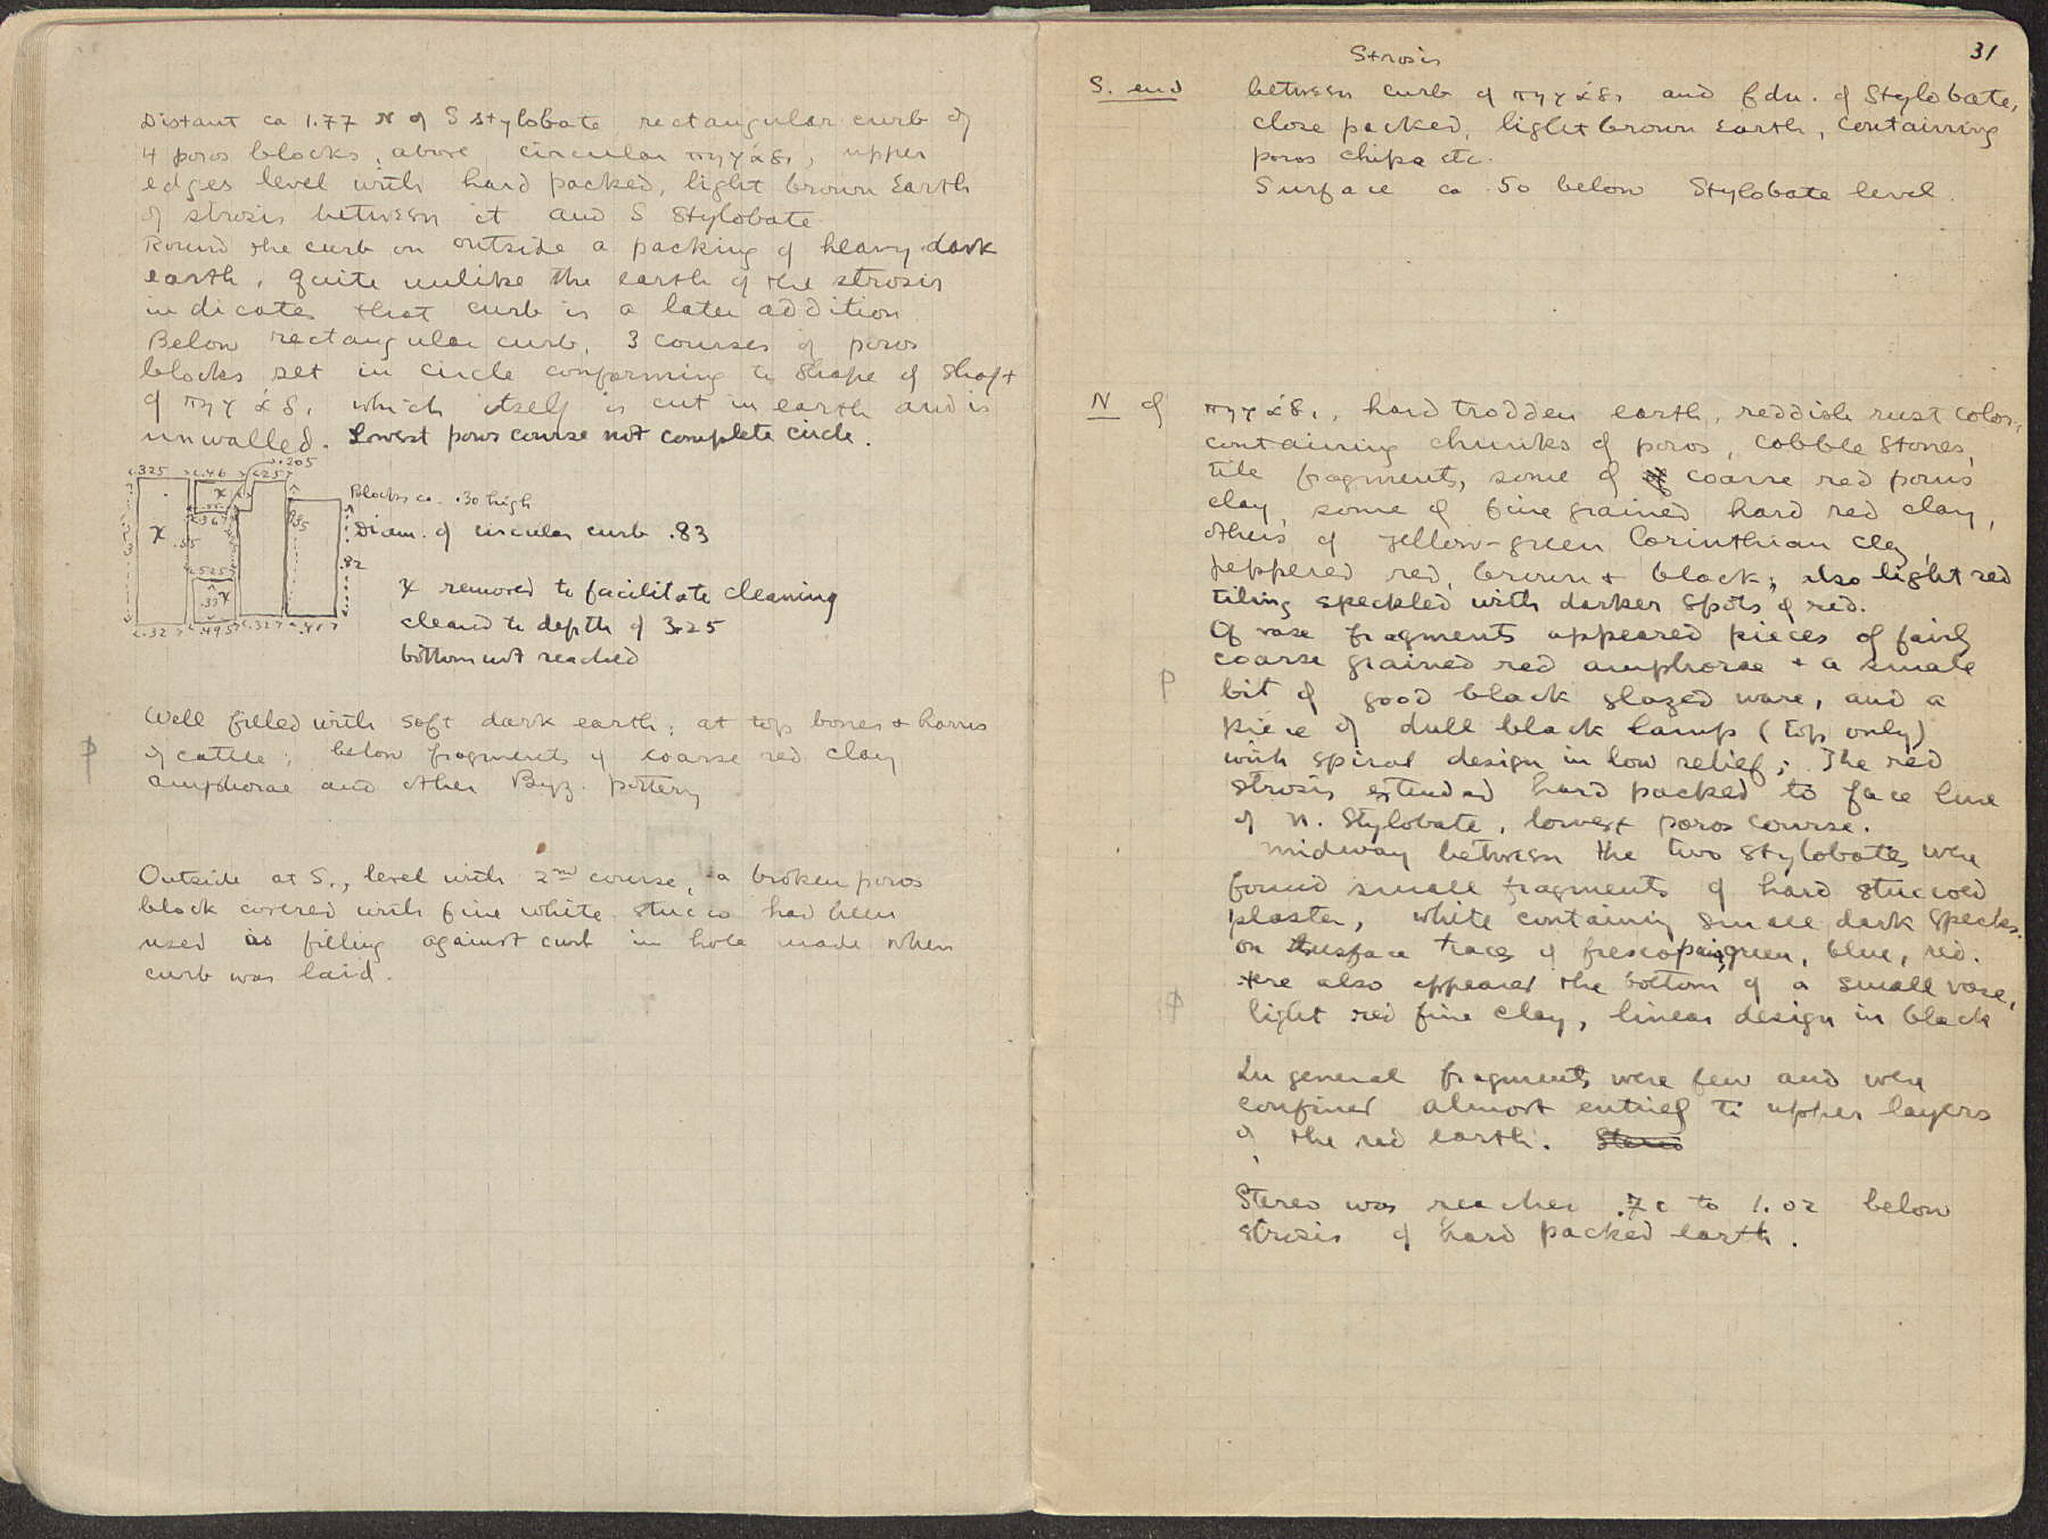 Distant ca 1.77 N of S stylobate rectangular curb of
4 poros blocks, above circular πηγάδι, upper
edges level with hard packed, light brown earth
of strosis between it and S stylobate
Round the curb on outside a packing of heavy dark
earth, quite unlike the earth of the strosis
indicates that curb is a later addition
Below rectangular curb, 3 courses of poros
blocks set in circle conforming to shape of shaft
of πηγάδι, which itself is cut in earth and is
unwalled. Lowest poros course not complete circle.
.325 .46 .25 .205
x
Blocks ca. .30 high
.367
.85
Diam. of circular curb .83
x
.82
.525
.33 x
x removed to facilitate cleaning
.32 .495 .32 .41
cleared to depth of 3.25
bottom not reached
Well filled with soft dark earth; at top bones + horns
P of cattle; below fragments of coarse red clay
amphorae and other Byz. pottery
Outside at S., level with 2nd course, a broken poros
block covered with fine white stucco had been
used as filling against curb in hole made when
curb was laid.
31
Strosis
S. end between curb of πηγάδι and fdn. of Stylobate,
close packed, light brown earth, containing
poros chips etc.
Surface ca .50 below Stylobate level.
N of πηγάδι, hard trodden earth, reddish rust color,
containing chunks of poros, cobble stones,
tile fragments, some of coarse red porus
clay, some of fine grained hard red clay,
others of yellow-green Corinthian clay,
peppered red, brown + black; also light red
tiling speckled with darker spots of red.
Of vase fragments appeared pieces of fairly
coarse grained red amphorae + a small
P bit of good black glazed ware, and a
piece of dull black lamp (top only)
with spiral design in low relief; The red
strosis extended hard packed to face line
of N. Stylobate, lowest poros course.
Midway between the two stylobates were
found small fragments of hard stuccoed
plaster, white containing small dark specks.
on surface traces of fresco green, blue, red.
Here also appeared the bottom of a small vase,
P light red fine clay, linear design in black
In general fragments were few and were
confined almost entirely to upper layers
of the red earth. Stereo
Stereo was reached .70 to 1.02 below
strosis of hard packed earth.